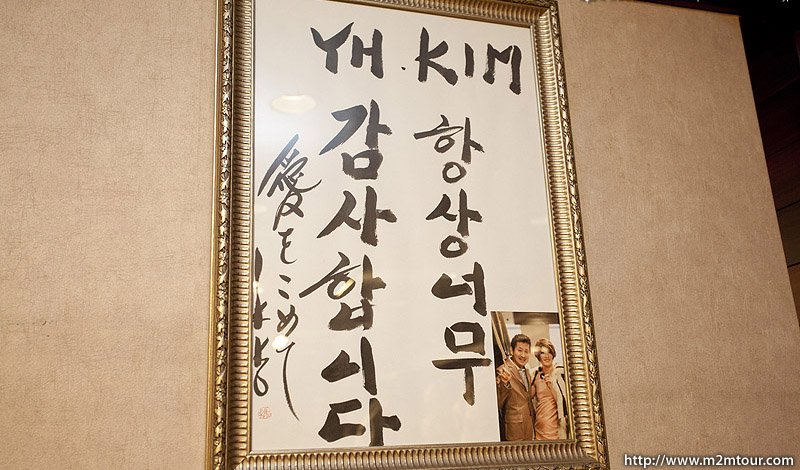 YH.KIM
항상너무
감사합니다
愛をこめて
http://www.m2mtour.com